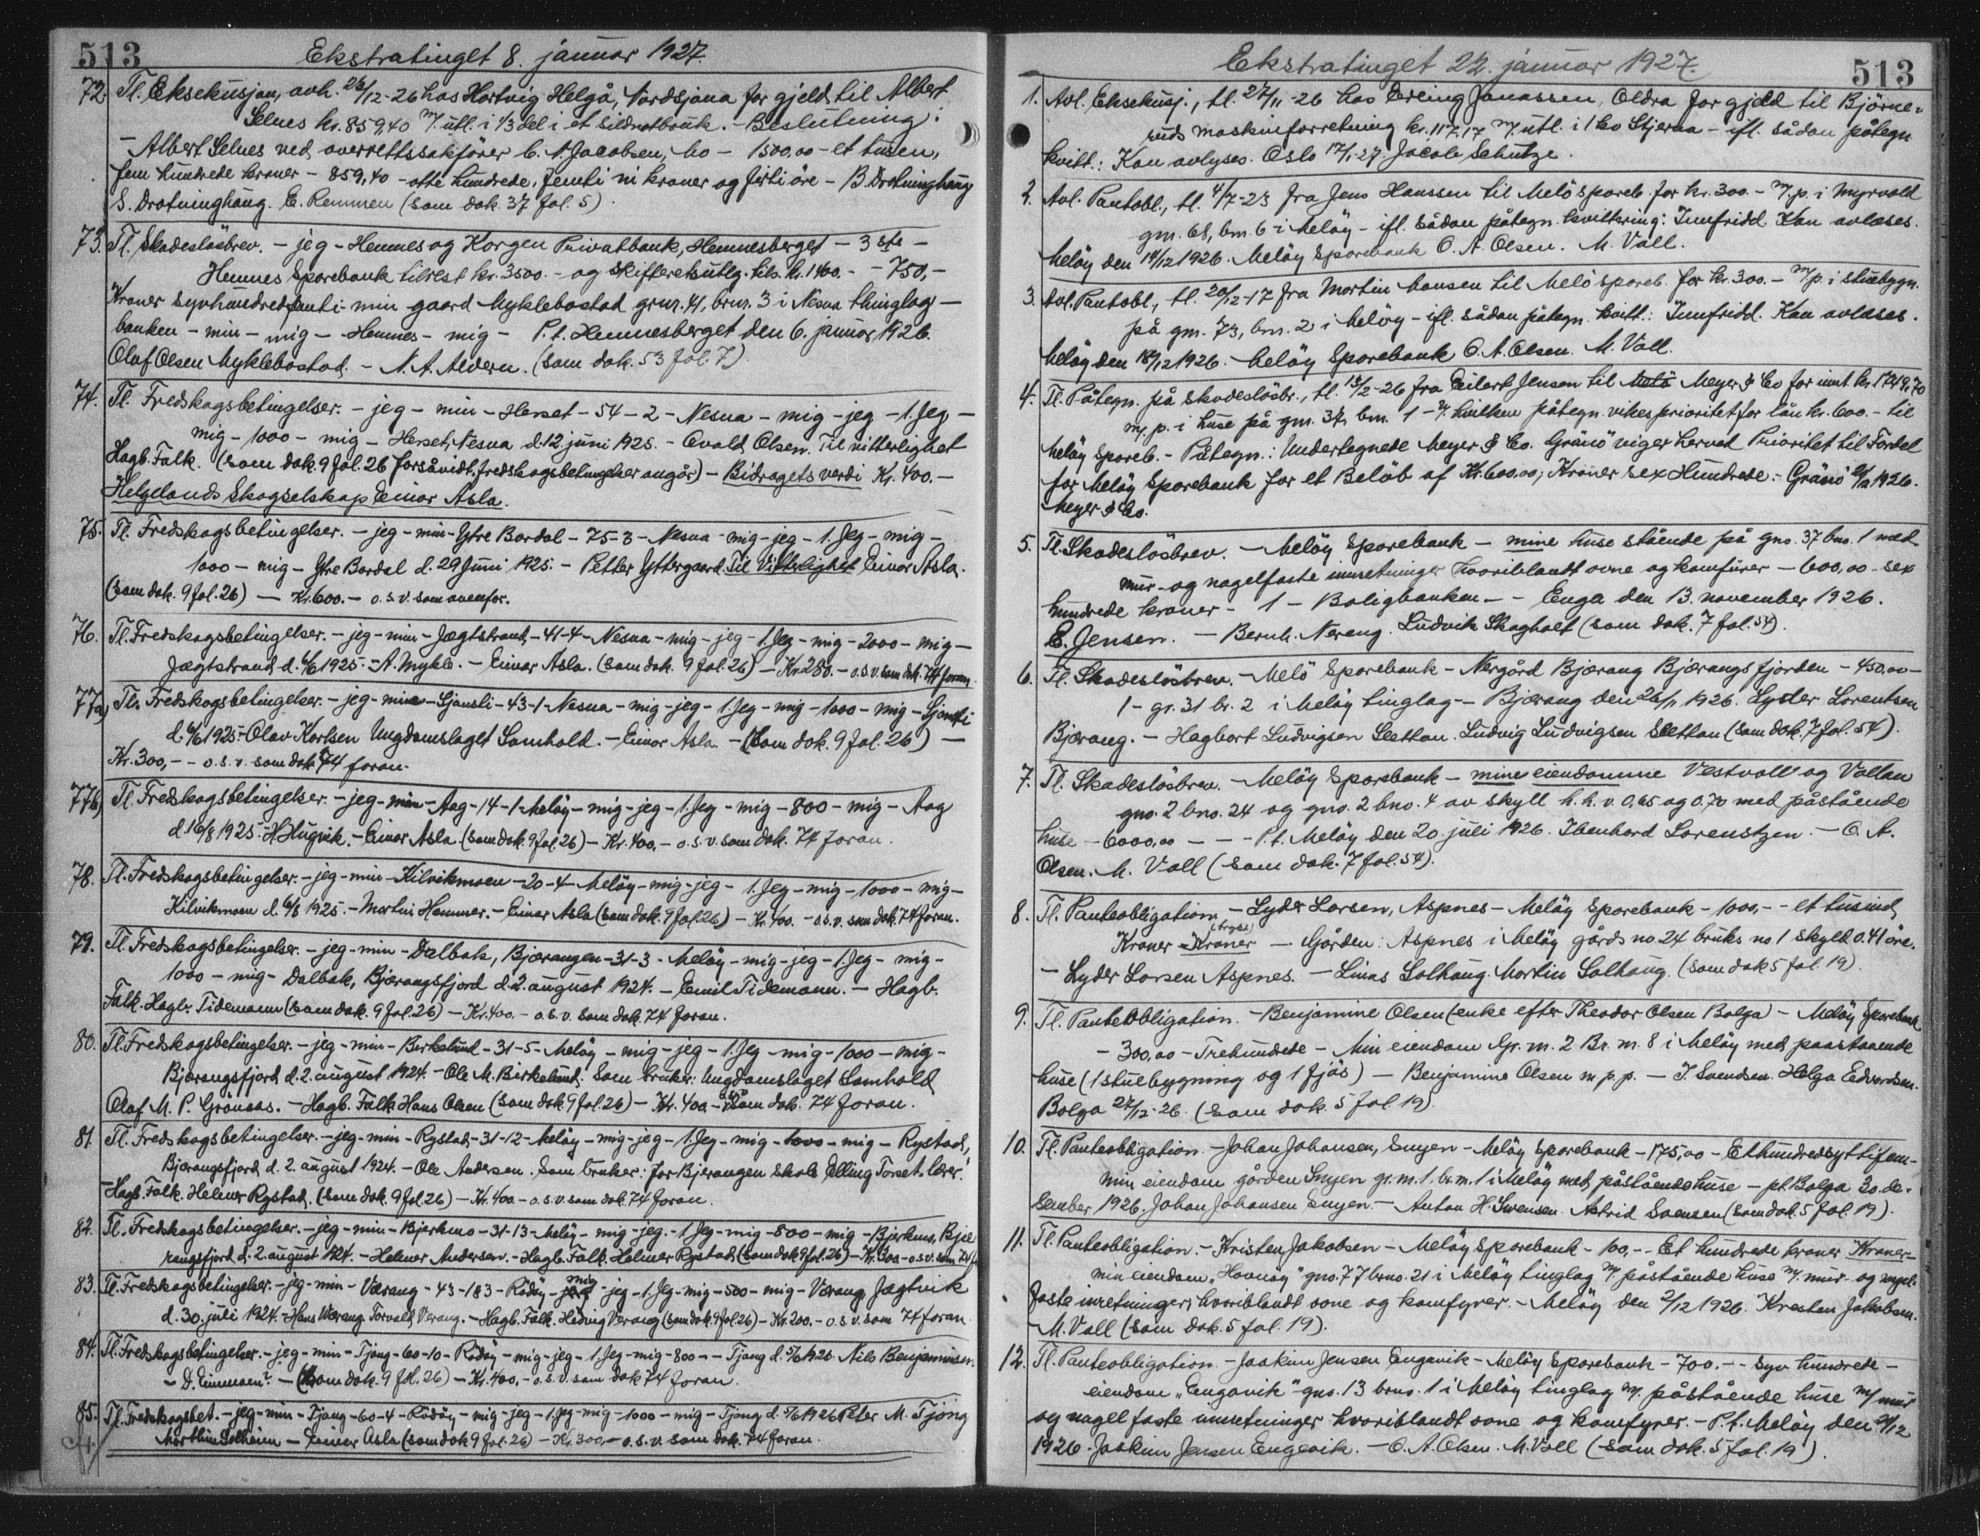 513
Ekstratinget 8. januar 1927.
72. Tl. Eksekusjon, avh. 23/12-26 hos Hartvig Helgå, Nordsjona for gjeld til Albert
Selnes kr. 859,40 m/ utl. i 1/3 del i et sildnotbruk. - Beslutning:
- Albert Selnes ved overrettssakfører C. A. Jacobsen, bo - 1500,00 - et tusen,
fem hundrede kroner - 859,40 - otte hundrede, femti ni kroner og firti öre - B. Drotninghaug
S. Drotninghaug. E. Remmen (som dok. 37 fol. 5).
73. Tl. Skadeslösbrev. - jeg - Hemnes og Korgen Privatbank, Hemnesberget - 3 ste -
Hemnes Sparebank tilrest kr. 3500.- og skifteretsutlg. tils. kr. 1400.- - 750,-
Kroner syvhundredfemti - min gaard Myklebostad grnr. 41, brnr. 3 i Nesna thinglag -
banken - min - mig - Hemnes - mig - P.t. Hemnesberget, den 6. januar 1926.
Olaf Olsen Myklebostad. - N. A. Aldern. (som dok. 53 fol. 7)
74. Tl. Fredskogsbetingelser. - jeg - min - Herset - 54 - 2 - Nesna - mig - jeg - 1. Jeg -
mig - 1000 - mig - Herset, Nesna d. 12 juni 1925. - Evald Olsen. Til vitterlighet
Hagb. Falk. (som dok. 9 fol. 26 forsåvidt fredskogsbetingelser angår) - Bidragets verdi Kr. 400.-
Helgelands Skogselskap Einar Asla.
75. Tl. Fredskogsbetingelser. - jeg - min - Ytre Bardal - 75 - 3 - Nesna - mig - jeg - 1. Jeg - mig -
1000 - mig - Ytre Bardal d. 29 Juni 1925. - Petter Yttergaard Til Vitterlighet Einar Asla.
(som dok. 9 fol. 26) - Kr. 600.- o.s.v. som ovenfor.
76. Tl. Fredskogsbetingelser. - jeg - min - Jægtstrand - 41-4 - Nesna - mig - jeg - 1. Jeg - mig - 2000 - mig -
Jægtstrand d. 6/6 1925. - A. Mykle. - Einar Asla. (som dok. 9 fol. 26) - Kr. 280.- o.s.v. som dok. 74 foran
77a) Tl. Fredskogsbetingelser. - jeg - min - Sjonsli - 43-1 - Nesna - mig - jeg - 1. Jeg - mig - 1000 - mig - Sjonsli
d. 6/6 1925 - Olav Karlsen Ungdomslaget Samhold. - Einar Asla. - (som dok. 9 fol. 26) -
Kr. 300,- - o.s.v. som dok. 74 foran.
77b) Tl. Fredskogsbetingelser. - jeg - min - Aag - 14-1 - Meløy - mig - jeg - 1. Jeg - mig - 800 - mig - Aag
d. 16/8 1925. - H. Hugvik. - Einar Asla (som dok. 9 fol. 26) - Kr. 400.- o.s.v. som dok. 74 foran.
78. Tl. Fredskogsbetingelser. - jeg - min - Kilvikmoen - 20-4 - Meløy - mig - jeg - 1. Jeg - mig - 1000 - mig -
Kilvikmoen d. 6/8 1925. - Martin Hammer. - Einar Asla (som dok. 9 fol. 26) - Kr. 400. - o.s.v. som dok. 74 foran.
79. Tl. Fredskogsbetingelser. - jeg - min - Dalbak, Bjærangen - 31-3 - Meløy - mig - jeg - 1. Jeg - mig -
1000 - mig - Dalbak, Bjærangsfjord d. 2. august 1924. - Emil Tidemann. - Hagb.
Falk. Hagb. Tidemann (som dok. 9 fol. 26) - Kr. 400.- o.s.v. som dok. 74 foran.
80. Tl. Fredskogsbetingelser. - jeg - min - Birkelund - 31-5 - Meløy - mig - jeg - 1. Jeg - mig - 1000 - mig -
Bjærangsfjord, d. 2. august 1924. - Ole M. Birkelund. Som bruker: Ungdomslaget Samhold
Olaf M. P. Grönaas. - Hagb. Falk Hans Olsen (som dok. 9 fol. 26) - Kr. 400.- o.s.v. som dok. 74 foran.
81. Tl. Fredskogsbetingelser. - jeg - min - Rystad - 31-12 - Meløy - mig - jeg - 1. Jeg - mig - 1000 - mig - Rystad,
Bjærangsfjord d. 2. august 1924. - Ole Andersen. Som bruker: for Bjærangen skole Elling Torset. lærer.
- Hagb. Falk. Helmer Rystad. (som dok. 9 fol. 26) - Kr. 400.- o.s.v. som dok. 74 foran.
82. Tl. Fredskogsbetingelser. - jeg - min - Bjerkmo - 31-13 - Meløy - mig - jeg. - 1. Jeg - mig - 800 - mig - Bjerkmo, Bjæ
rangsfjord d. 2. august 1924. - Helmer Andersen. - Hagb. Falk. Helmer Rystad (som dok. 9 fol. 26) - Kr. 300 - o.s.v. som 74 f.
83. Tl. Fredskogsbetingelser. - jeg - min - Værang - 43-183 - Rödøy - mig - jeg - 1. Jeg - mig - 500 - mig - Værang Jægtvik
d. 30. juli 1924. - Hans Værang Torvald Værang. - Hagb. Falk. Hedvig Værang (som dok. 9 fol. 26) - Kr. 200.- o.s.v. som 74 foran.
84. Tl. Fredskogsbetingelser. - jeg - min - Tjong - 60-10 - Rödöy - mig - jeg - 1. Jeg - mig - 800 - - Tjong d. 5/6 1926. Nils Benjaminsen
- D. Einmoen? - (som dok. 9 fol. 26) - Kr. 400,- o.s.v. som dok 74 foran.
85. Tl. Fredskogsbet. - jeg - min - Tjong - 60-4 - Rödöy - mig - jeg - 1. jeg - mig - 1000 - mig - Tjong d. 5/6 1926 Peter M. Tjong
Marthin Solheim - Einar Asla (som dok 9 fol. 26) - Kr. 300,- o.s.v. som dok. 74 foran.
Ekstratinget 22. januar 1927.
513
1. Avl. Eksekusj., tl. 27/11-26 hos Erling Jonassen, Oldra for gjeld til Björne-
ruds maskinforretning kr. 117,17 m/ utl. i 1 Co Stjerna - ifl. sådan påtegn
kvitt.: Kan avlyses. Oslo 17/1-27. Jacob Schutze.
2. Avl. Pantobl., tl. 4/7-23 fra Jens Hanssen til Melö spareb. for kr. 300.- m/p. i Myrvold
gnr. 68, bnr. 6 i Meløy - ifl. sådan påtegn. kvittering: Innfridd. Kan avlæses.
Meløy den 14/12 1926. Meløy Sparebank O. A. Olsen. M. Vall.
3. Avl. Pantobl., tl. 20/12-17 fra Martin Hansen til Melö spareb. for kr. 300.- m/p. i stuebygn.
på gnr. 73, bnr. 2 i Meløy - ifl. sådan påtegn. kvitt.: Innfridd. Kan avlæses.
Meløy den 18/12 1926. Meløy Sparebank O. A. Olsen. M. Vall.
4. Tl. Påtegn. på skadeslösbr., tl. 13/2-26 fra Eilert Jensen til Melö Meyer & Co for innt. kr. 1749,70
m/p. i huse på gnr. 37, bnr. 1 - v/ hvilken påtegn. vikes prioritet for lån kr. 600.- til
Meløy Spareb. - Påtegn.: Undertegnede Meyer & Co. Grönö viger herved Prioritet til Fordel
for Meløy Sparebank for et Belöb af Kr. 600.00, Kroner sex Hundrede. - Grönö 1926.
Meyer & Co.
5. Tl. Skadeslösbrev. - Meløy Sparebank - mine huse stående på gno. 37 bno. 1 med
mur- og nagelfaste innretninger hvoriblandt ovne og komfurer - 600,00 - sex
hundrede kroner - 1 - Boligbanken - - Enga den 13. november 1926.
E. Jensen. - Bernh. Nereng. Ludvik Skoghalt (som dok. 7 fol. 54).
6. Tl. Skadeslösbrev. - Melö Sparebank - Nergård Bjærang Bjærangsfjorden - 450,00 -
1 - gr. 31 br. 2 i Meløy tinglag - Bjærang den 26/11 1926. Lyder Lorentsen
Bjærang. - Hagbart Ludvigsen Slettan. Ludvig Ludvigsen Slettan (som dok. 7 fol. 54).
7. Tl. Skadeslösbrev. - Meløy Sparebank - mine eiendomme Vestvall og Vallan
gno. 2 bno. 24 og gno. 2 bno. 4 av skyll h.h.v. 0,65 og 0,70 med påstående
huse - 6000,00 - - - P.t. Meløy den 20. juli 1926. Ibenhard Lorenstzen. - O. A.
Olsen. M. Vall (som dok. 7 fol. 54).
8. Tl. Panteobligation. - Lyder Larsen, Aspnes - Meløy Sparebank - 1000,- - et tusind
Kroner Kroner (trykt) - Gården: Aspnes i Meløy gårds no. 24 bruks no 1 skyld 0.41 öre.
- Lyder Larsen Aspnes. - Linas Solhaug. Martin Solhaug. (som dok 5 fol. 19).
9. Tl. Panteobligation. - Benjamine Olsen (enke efter Theodor Olsen Bolga) - Meløy Sparebank
- 300,00 - Trehundrede - Min eiendom Gr. nr. 2 Br. nr. 8 i Meløy med paastaaende
huse (1 stuebygning og 1 fjös) - Benjamine Olsen m.p.p. - J. Svendsen. Helga Edvardsen.
Bolga 27/12-26. (som dok. 5 fol. 19)
10. Tl. Panteobligation. - Johan Johansen, Snyen - Meløy Sparebank - 175,00 - Ethundredsyttifem -
min eiendom gården Snyen gr. nr. 1. br. nr. 1 i Meløy med påstående huse - pt. Bolga 30. de-
sember 1926. Johan Johansen Snyen. - Anton H. Svensen. Astrid Svensen (som dok. 5 fol. 19).
11. Tl. Panteobligation. - Kristen Jakobsen - Meløy Sparebank - 100,- - Et hundrede kroner Kroner -
min eiendom "Havnöy" gno. 77 brno. 21 i Meløy tinglag m/ påstående huse m/ mur- og nagel-
faste inretninger, hvoriblandt ovne og komfyrer. - Meløy den 2/12 1926. Kresten Jakobsen.
- M. Vall (som dok. 5 fol. 19).
12. Tl. Panteobligation. - Joakim Jensen Engavik - Meløy Sparebank - 700.- - Syv hundrede -
eiendom "Engavik" gno. 13 brno. 1 i Meløy tinglag m/ påstående huse m/ mur
og nagelfaste innretninger hvoriblandt ovne og komfyrer. - P.t. Meløy den 21/12
1926. Joakim Jensen Engavik. - O. A. Olsen. M. Vall (som dok. 5 fol. 19).